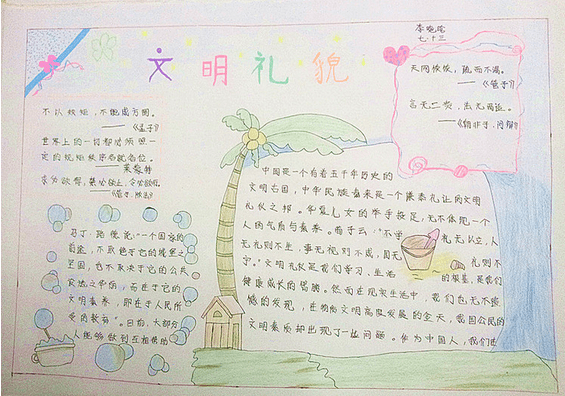 李晓
七.十三
文明礼貌
天网恢恢，疏而不漏。
——《老子》
言无二贵，法无两适。
——《韩非子·问辩》
不以规矩，不能成方圆。
——《孟子》
世界上的一切都必须按照一
定的规矩秩序各就各位。
——莱蒙特
求必欲得，禁必欲止，令必欲行。
——《管子·法法》
中国是一个有着五千年历史的
文明古国，中华民族素来是一个谦恭礼让的文明
礼仪之邦。华夏儿女的举手投足，无不体现一个
人的气质与素养。荀子云：“不学 礼无以立，人
无礼则不生，事无礼则不成，国无 礼则不
宁。”文明礼仪是我们学习、生活 的根基，是我们
健康成长的臂膀。然而在现实生活中，我们也无不遗
憾的发现，在物质文明高度发展的今天，我国公民的
文明素质却出现了一些问题。作为中国人，我们
马丁·路德说：“一个国家的
前途，不取决于它的城堡之
坚固，也不取决于它的公共
设施之华丽，而在于它的
文明素养，即在于人民所
受的教育”。日前，大部分
人能够做到互相帮助